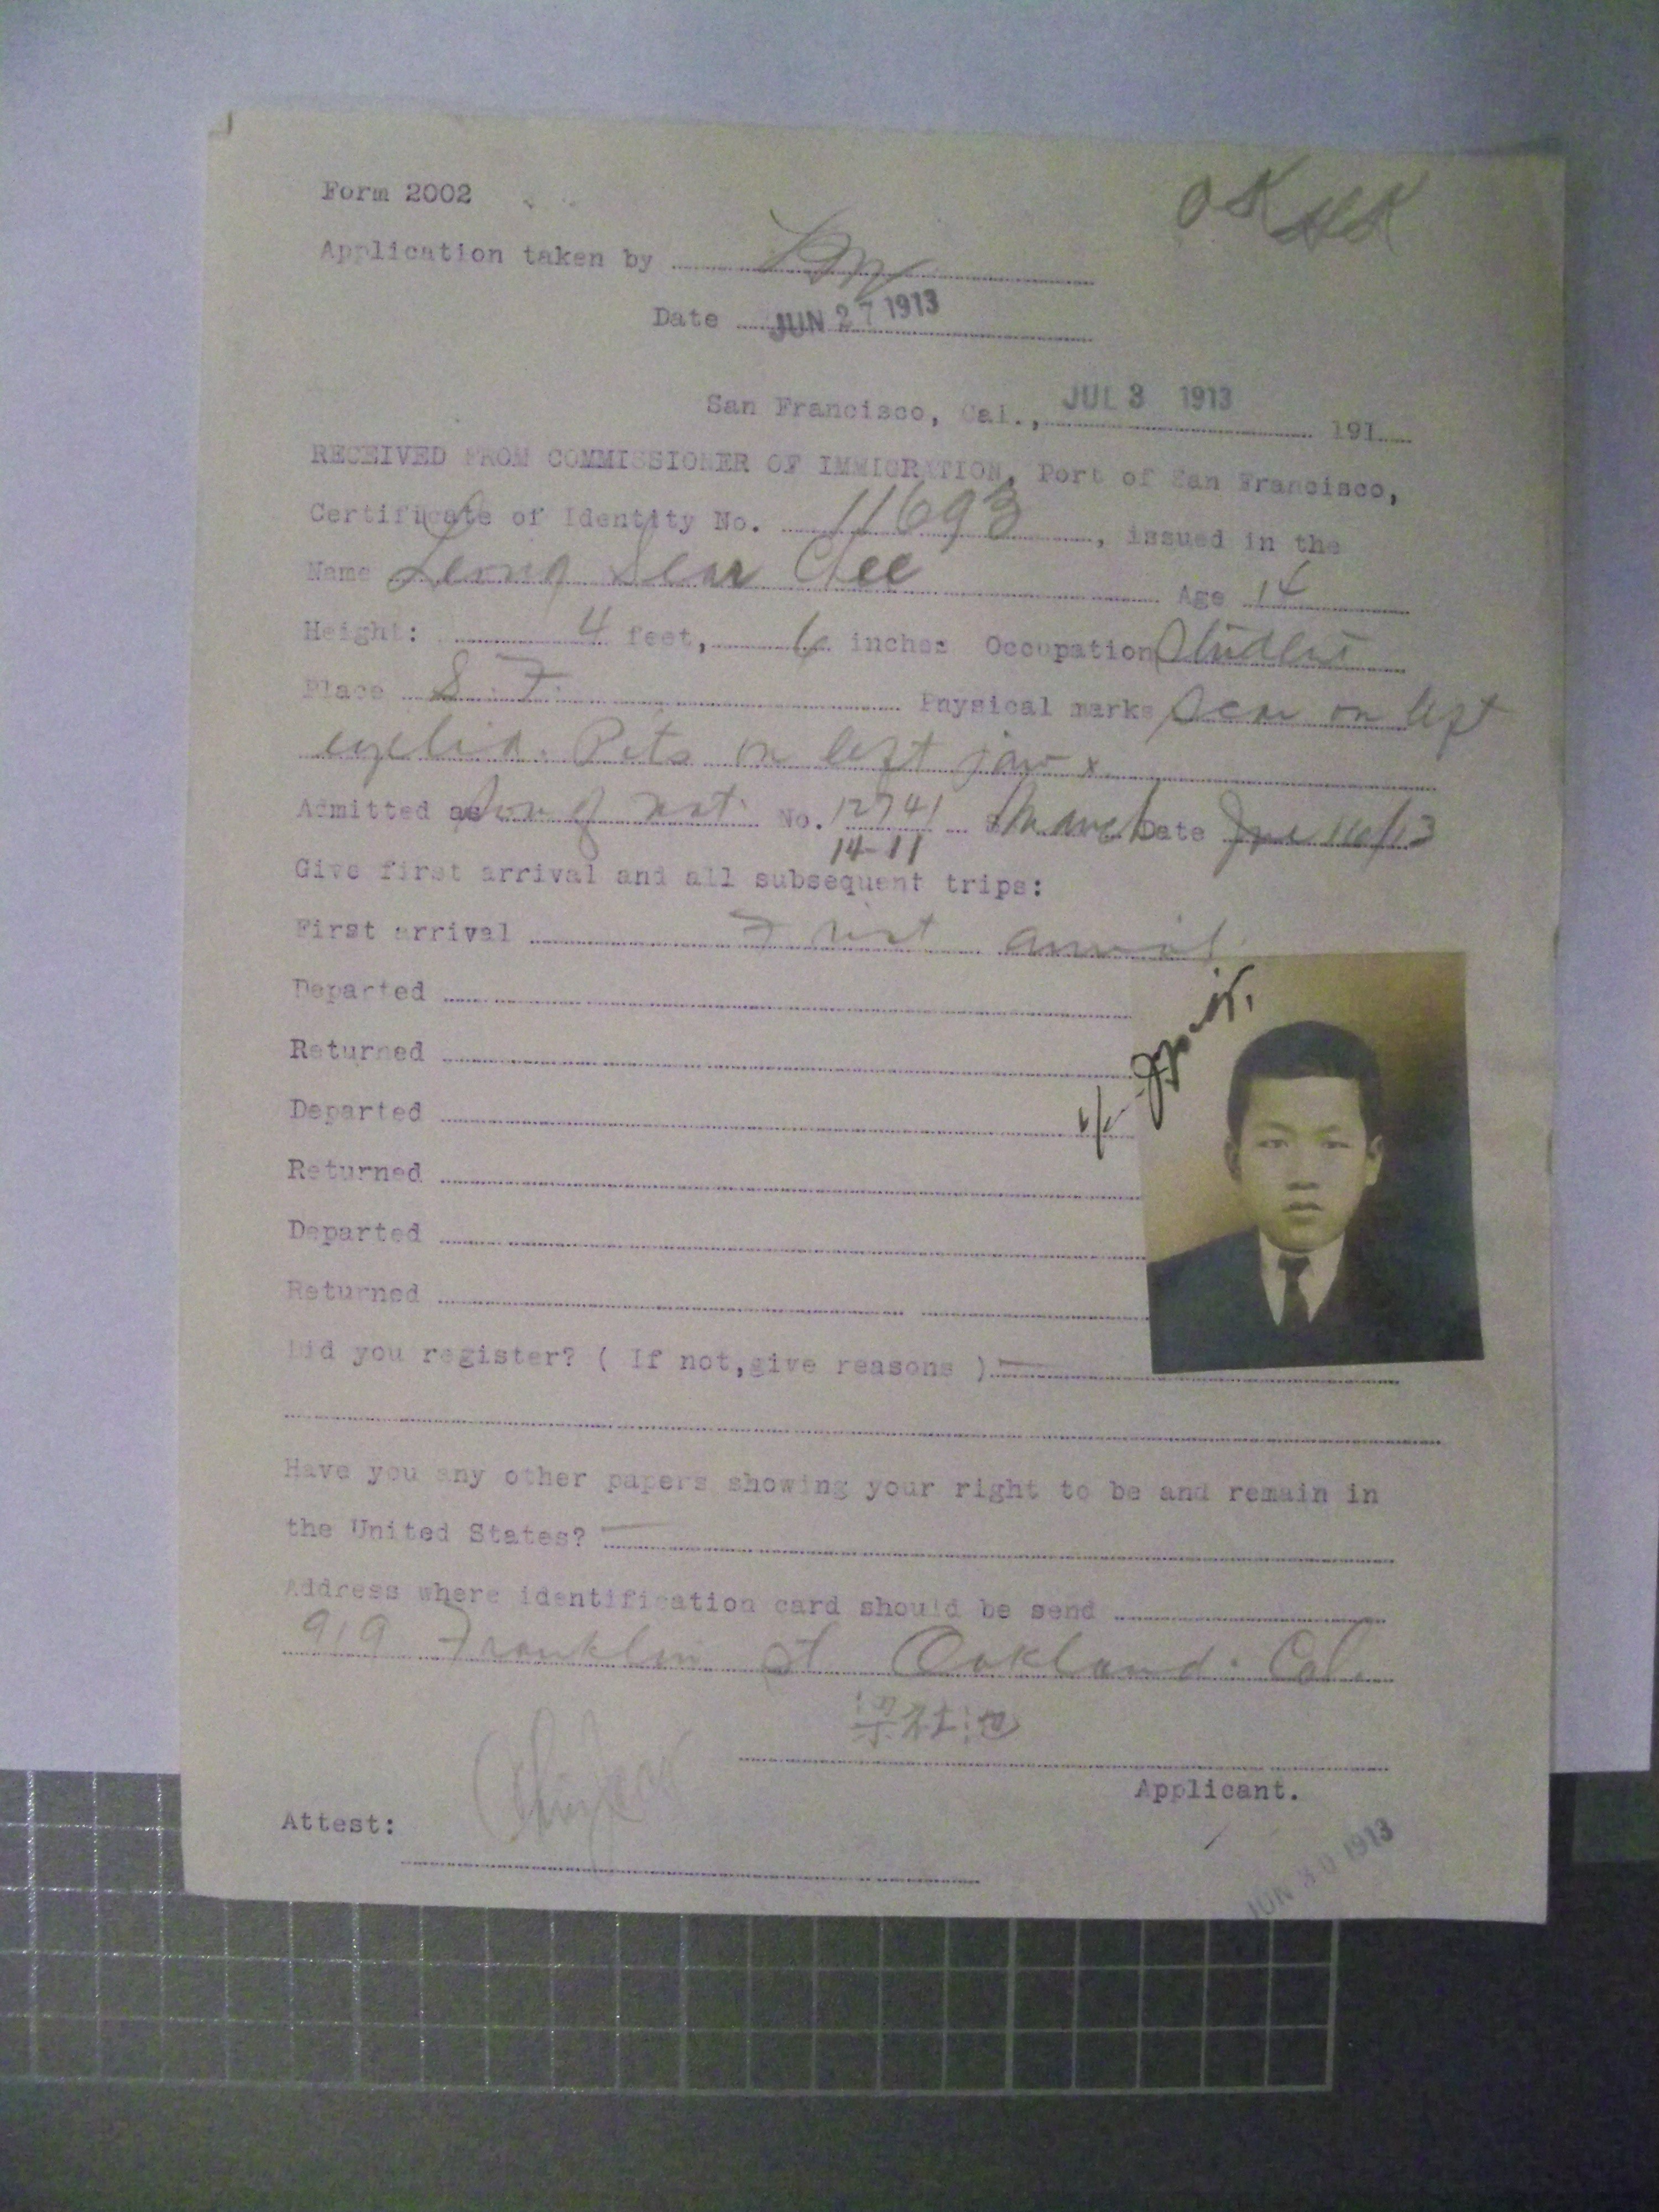 Form 2002
OK
Application taken by
Date JUN 27 1913
San Francisco, Cal., JUL 3 1913 191
RECEIVED FROM COMMISSIONER OF IMMIGRATION, Port of San Francisco,
Certificate of Identity No. 11693, issued in the
Name Leong Sear Chee Age 14
Height: 4 feet, 6 inches Occupation Student
Place S.F. Physical marks Scar on left
eyelid. Pits on left jaw x
Admitted as Son of nat. No. 12741 Date
14-11
Give first arrival and all subsequent trips:
First arrival First arrival
Departed
Returned
Departed
Returned
Departed
Returned
Did you register? ( If not,give reasons )
Have you any other papers showing your right to be and remain in
the United States?
Address where identification card should be send
919 Franklin St Oakland. Cal.
梁社池
Applicant.
Attest:
JUN 30 1913